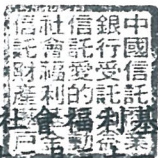 中國信託
銀行受託
信託愛的
社會福利
信託財產專戶
社會福利基